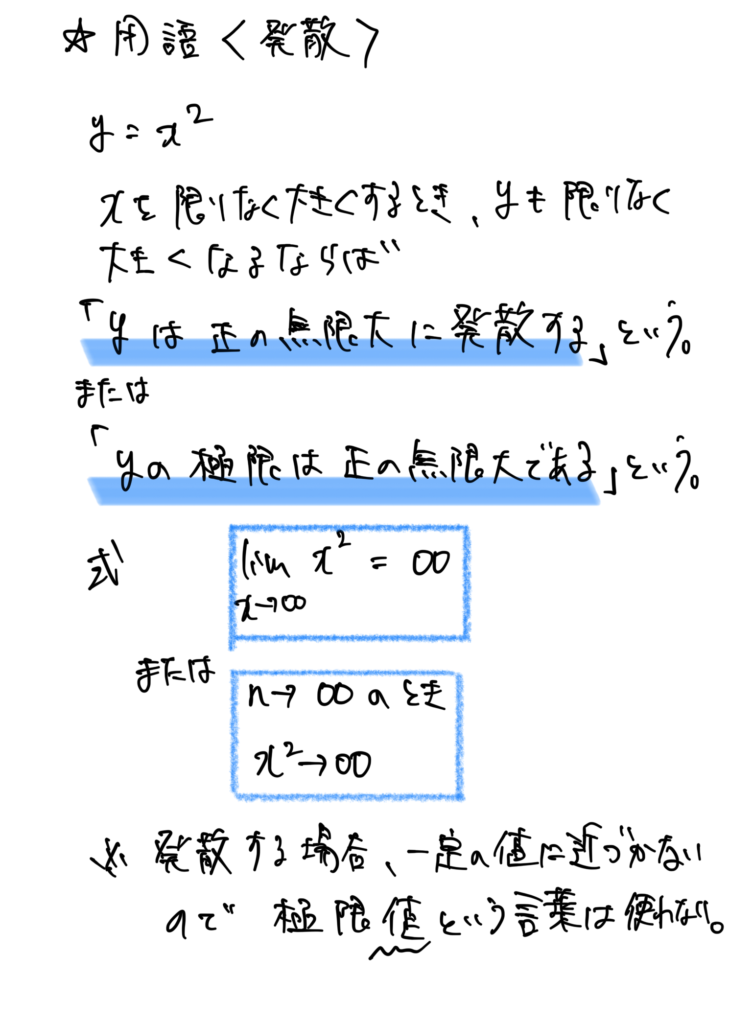 ☆用語〈発散〉
y = x²
xを限りなく大きくするとき、yも限りなく
大きくなるならば
「yは正の無限大に発散する」という。
または
「yの極限は正の無限大である」という。
式
lim x² = ∞
x→∞
または
n→∞のとき
x²→∞
※ 発散する場合、一定の値に近づかない
ので 極限値という言葉は使わない。